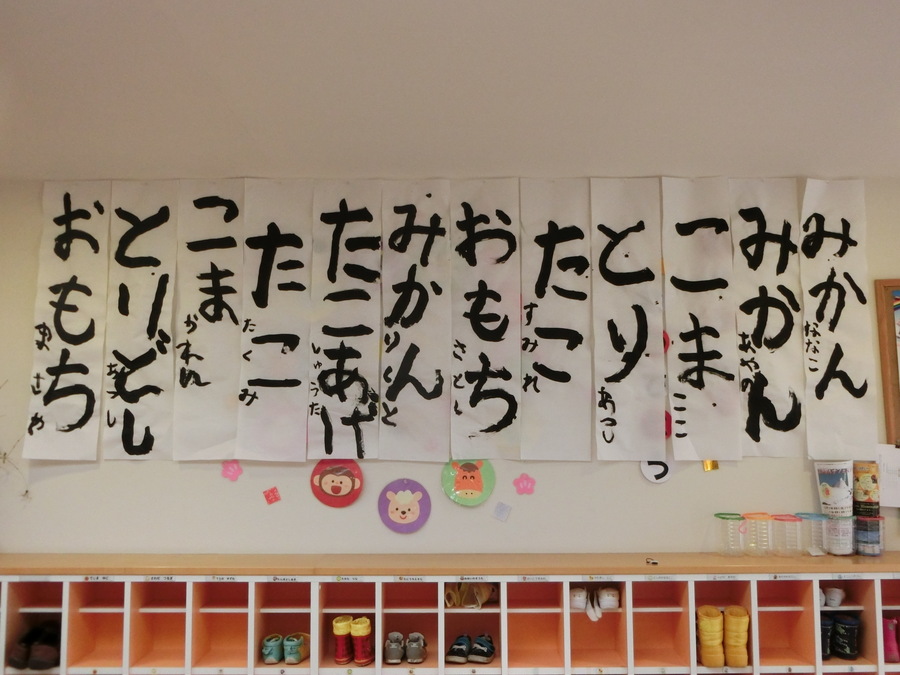 みかん
ななこ
みかん
あやの
こま
ここ
とり
あつし
たこ
すみれ
おもち
さとし
みかん
りくと
たこあげ
しゅうた
たこ
たくみ
こま
かれん
とりどし
おもち
まさや
つ